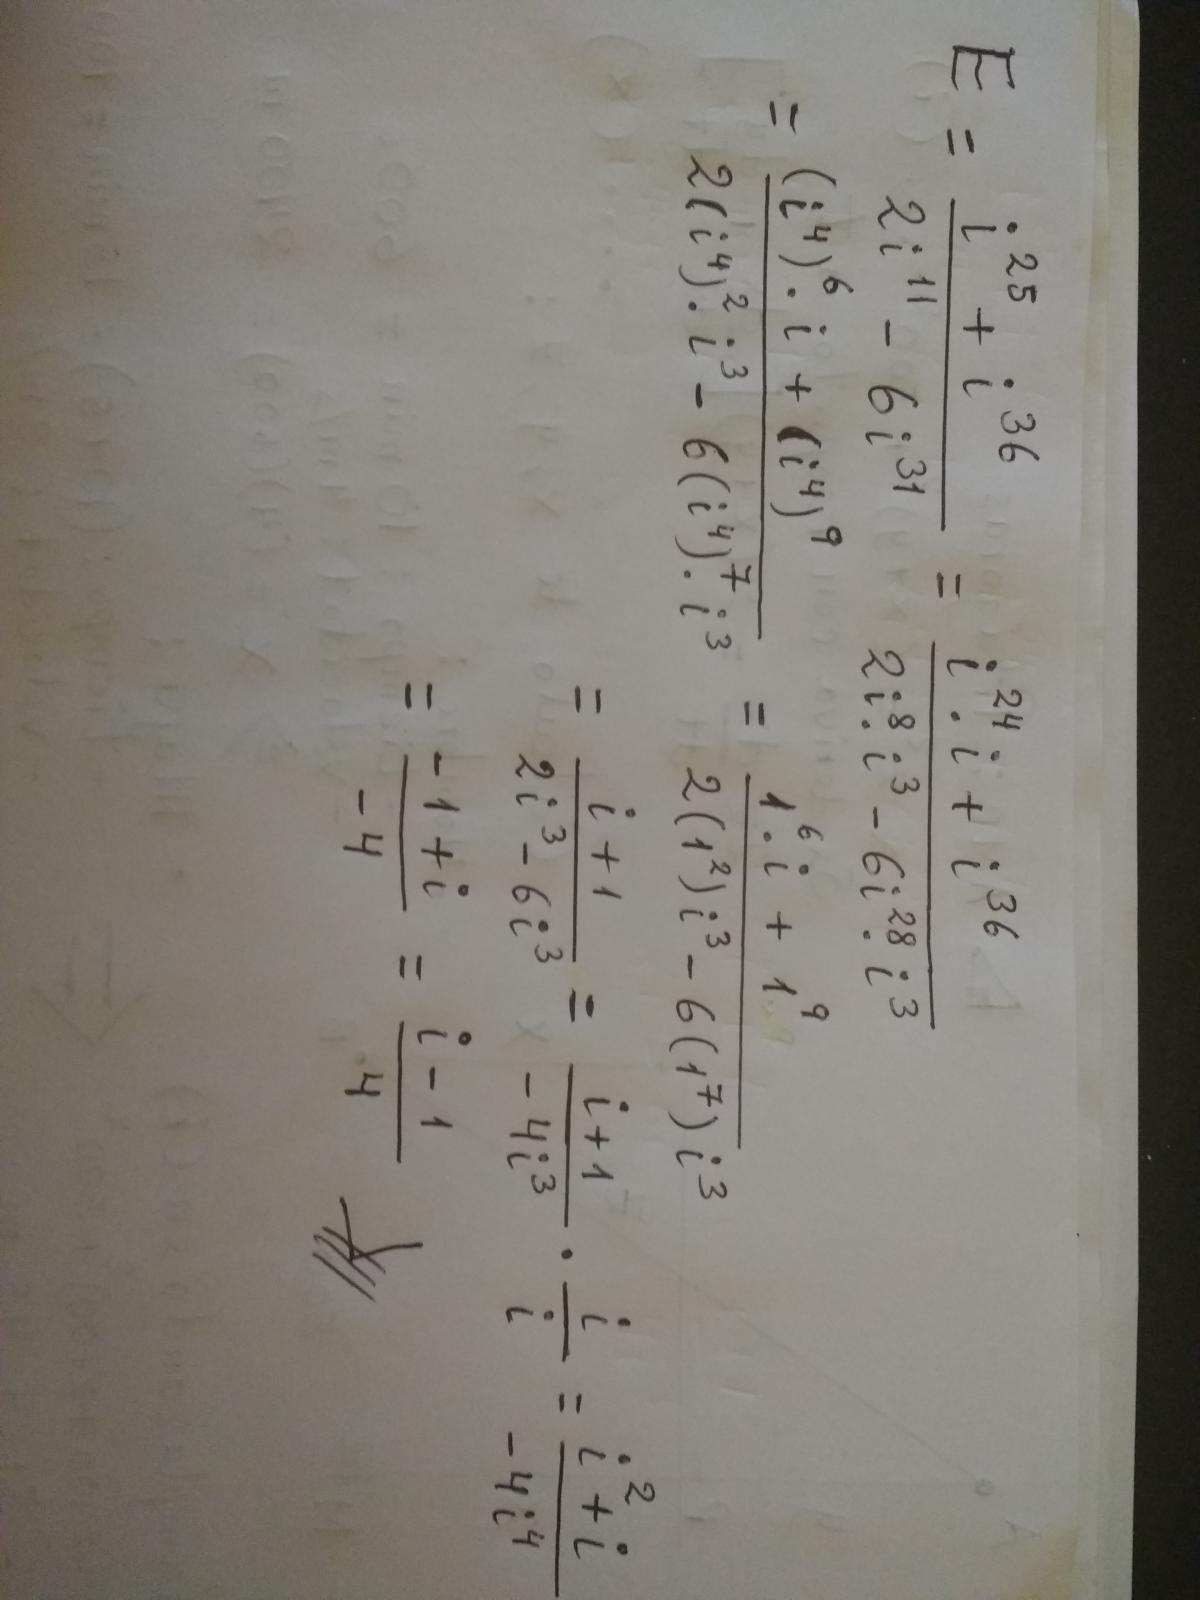 E = (i^25 + i^36)/(2i^11 - 6i^31) = (i^24 · i + i^36)/(2i^8 · i^3 - 6i^28 · i^3)
= ((i^4)^6 · i + (i^4)^9)/(2(i^4)^2 · i^3 - 6(i^4)^7 · i^3) = (1^6 · i + 1^9)/(2(1^2)i^3 - 6(1^7)i^3)
= (i+1)/(2i^3 - 6i^3) = (i+1)/(-4i^3) · i/i = (i^2+i)/(-4i^4)
= (-1+i)/(-4) = (i-1)/4